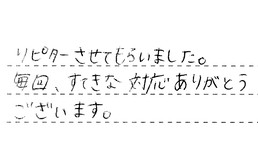 リピターさせてもらいました。
毎回、すてきな対応ありがとう
ございます。